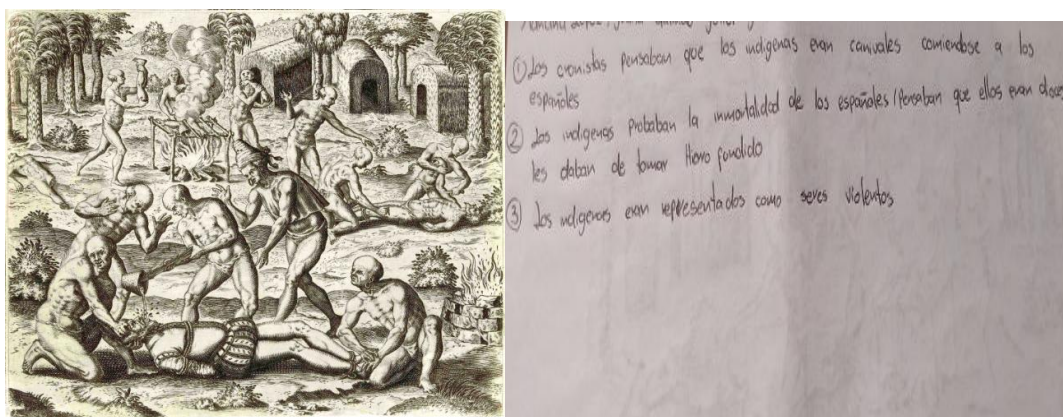 ① Los cronistas pensaban que los indigenas eran canivales comiendose a los
españoles
② Los indigenas probaban la inmortalidad de los españoles / Pensaban que ellos eran dioses
les daban de tomar Hierro fundido
③ Los indigenas eran representados como seres violentos